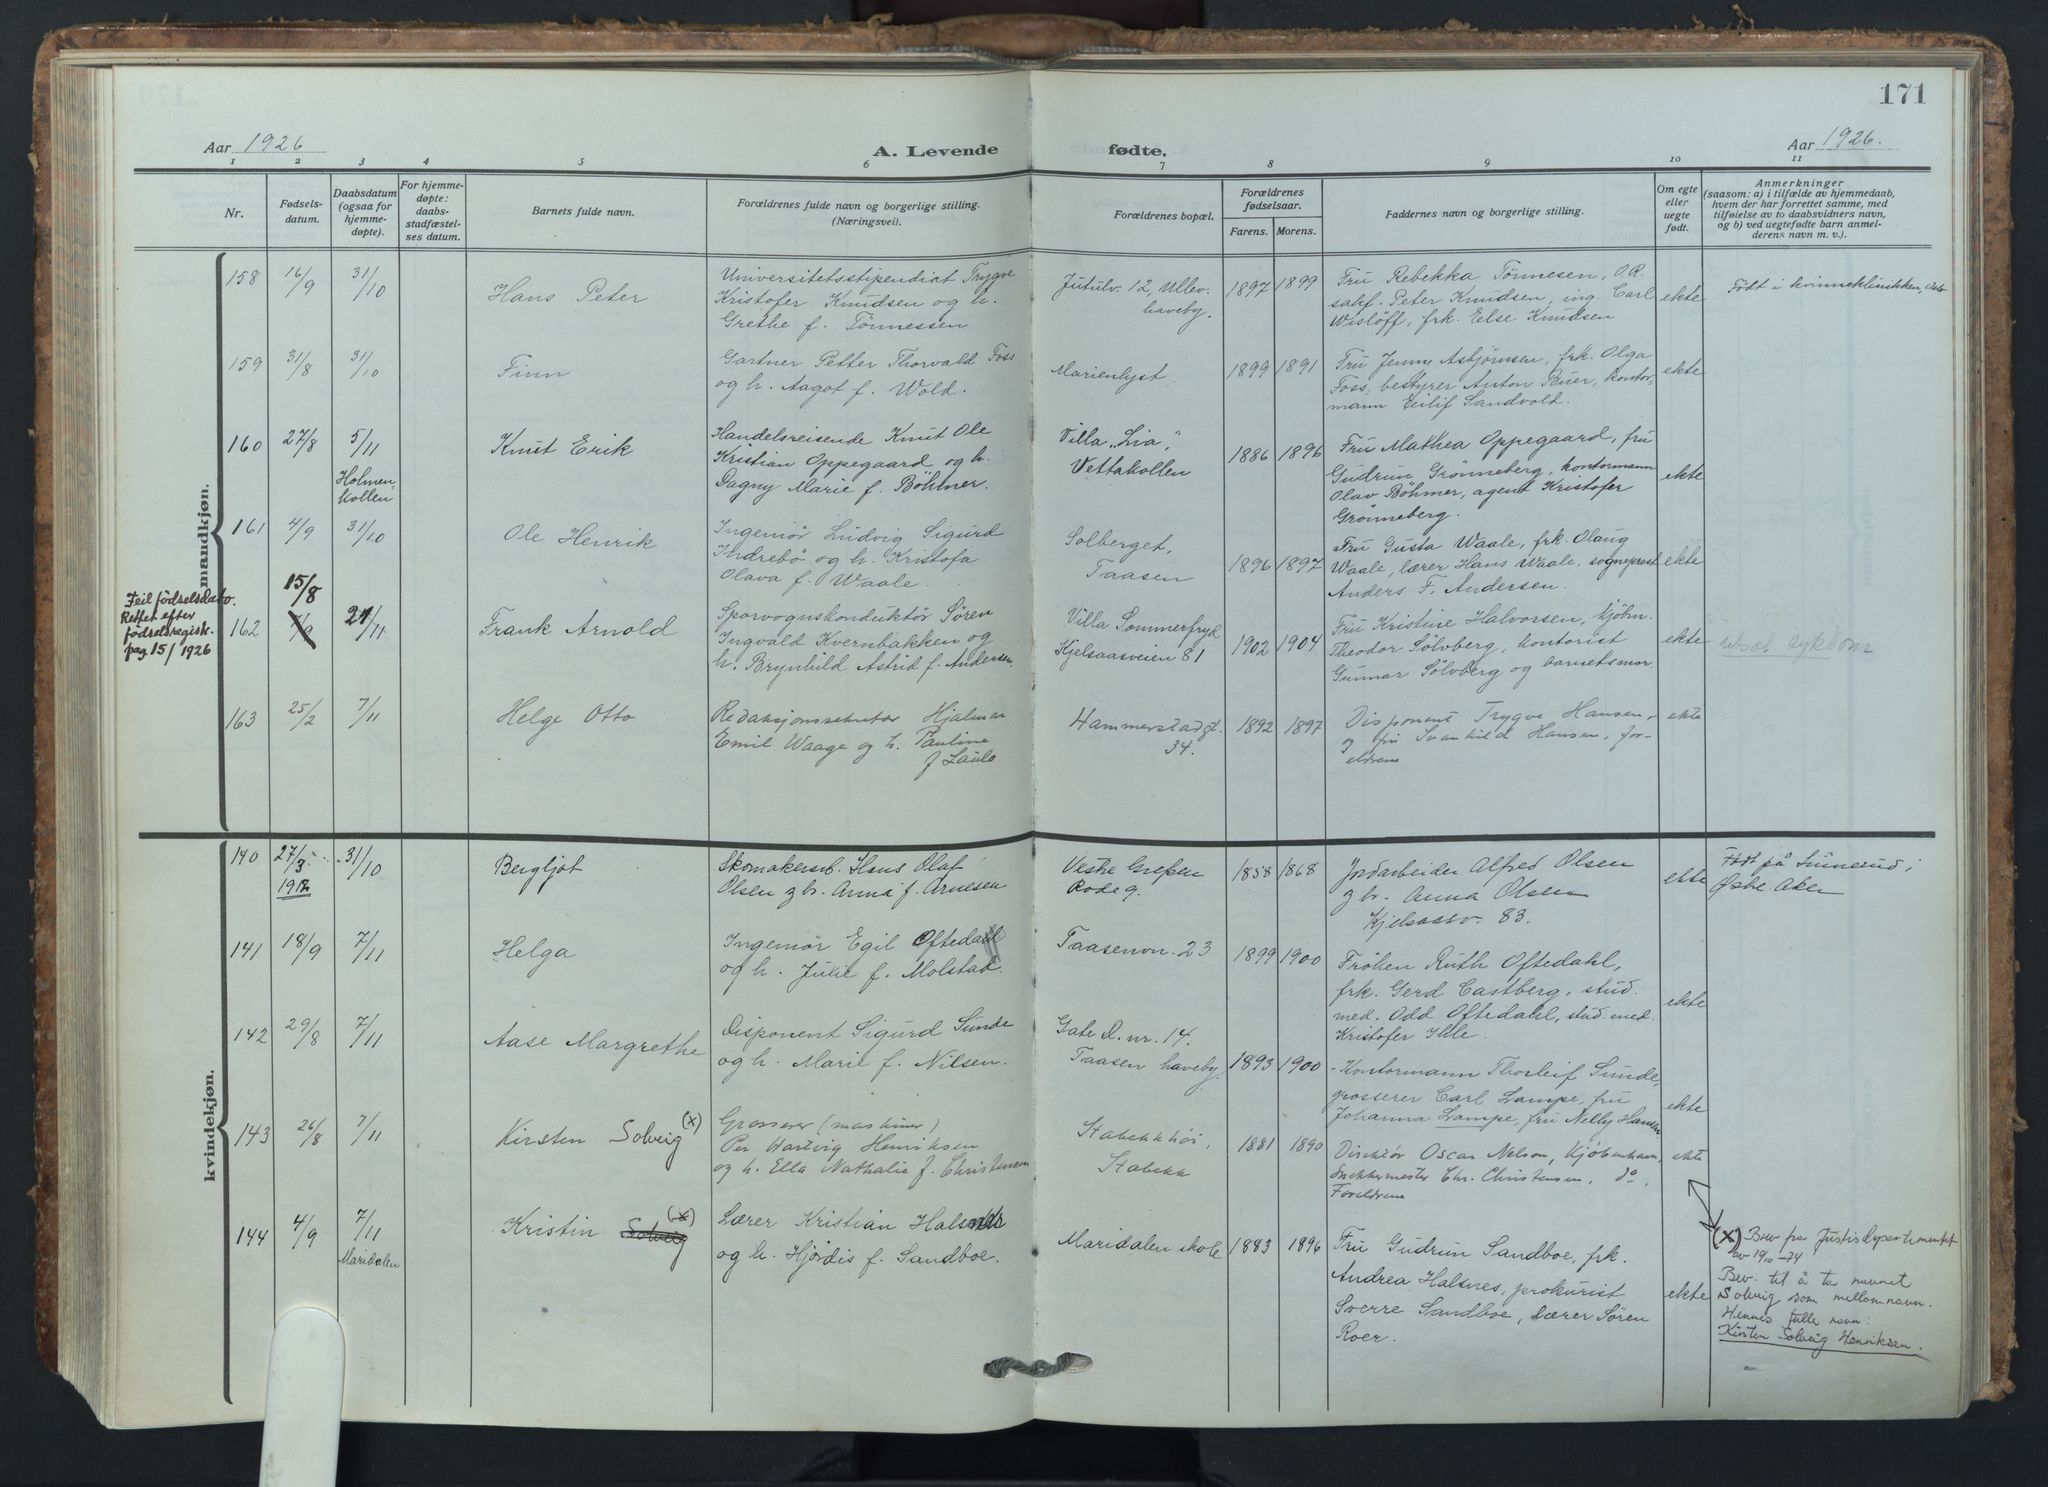 171
Aar 1926
A. Levende fødte.
Aar 1926.
1 2 3 4 5 6 7 8 9 10 11
Nr.
Fødsels-
datum.
Daabsdatum
(ogsaa for
hjemme-
døpte).
For hjemme-
døpte:
daabs-
stadfæstel-
ses datum.
Barnets fulde navn.
Forældrenes fulde navn og borgerlige stilling.
(Næringsvei).
Forældrenes bopæl.
Forældrenes
fødselsaar.
Farens. Morens.
Faddernes navn og borgerlige stilling.
Om egte
eller
uegte
født.
Anmerkninger
(saasom: a) i tilfælde av hjemmedaab,
hvem der har forrettet samme, med
tilføielse av to daabsvidners navn,
og b) ved uegtefødte barn anmel-
derens navn m. v.).
mandkjøn.
158 16/9 31/10
Hans Peter
Universitetsstipendiat Trygve
Kristofer Knudsen og h.
Grethe f. Tönnessen
Jutulv. 12, Ullev.
haveby.
1897 1899
Fru Rebekka Tönnesen, O.R.
sakf. Peter Knudsen, ing. Carl
Wislöff, frk. Else Knudsen
ekte
Født i kvinneklinikken, Oslo
159 31/8 31/10
Finn
Gartner Petter Thorvald Foss
og h. Aagot f. Wold.
Marienlyst
1899 1891
Fru Jenny Asbjørnsen, frk. Olga
Foss, bestyrer Anton Buer, kontor-
mann Eilif Sandvold.
ekte
160 27/8 5/11
Holmen-
kollen
Knut Erik
Handelsreisende Knut Ole
Kristian Oppegaard og h.
Dagny Marie f. Böhmer.
Villa „Lia",
Vettakollen
1886 1896
Fru Mathea Oppegaard, fru
Gudrun Grönneberg, kontormann
Olav Böhmer, agent Kristofer
Grönneberg.
ekte
161 4/9 31/10
Ole Henrik
Ingeniør Ludvig Sigurd
Indrebö og h. Kristofa
Olava f. Waale.
Solberget,
Taasen
1896 1897
Fru Gusta Waale, frk. Olaug
Waale, lærer Hans Waale, sogneprest
Anders F. Andersen.
ekte
Feil födselsdato.
Rettet efter
födselsregistr.
pag. 15/1926
15/8
162 21/11
Frank Arnold
Sporvognskonduktör Sören
Ingvald Kvernbakken og
h. Brynhild Astrid f. Andersen.
Villa Sommerfryd
Kjelsaasveien 81
1902 1904
Fru Kristine Halvorsen, kjöbm.
Theodor Sölvberg, kontorist
Gunnar Sölvberg og barnets mor
ekte
utsat sykdom
163 25/2 7/11
Helge Otto
Redaksjonssekretær Hjalmar
Emil Waage og h. Pauline
f
Hammerstadgt.
34.
1892 1897
Disponent Trygve Hansen,
og fru Svanhild Hansen, for-
eldrene
ekte
kvindekjøn.
140 27/3 31/10
1912
Bergljot
Skomakersv. Hans Olaf
Olsen og h. Anna f. Arnesen
Vestre Grefsen
Rode 9.
1858 1868
Jordarbeider Alfred Olsen
og h. Anna Olsen
Kjelsaasv. 83.
ekte
Født på i
Østre Aker
141 18/9 7/11
Helga
Ingeniör Egil Oftedahl
og h. Julie f. Molstad.
Taasenvn. 23
1899 1900
Fröken Ruth Oftedahl,
frk. Gerd Castberg, stud.
med. Odd Oftedahl, stud. med.
Kristofer Ille.
ekte
142 29/8 7/11
Aase Margrethe
Disponent Sigurd Sunde
og h. Marie f. Nilsen.
Gate D. nr. 14.
Taasen haveby.
1893 1900
Kontormann Thorleif Sunde,
grosserer Carl Lampe, fru
Johanna Lampe, fru Nelly Hansen
ekte
143 26/8 7/11
Kirsten Solveig (x)
Grosserer (maskiner)
Per Hartvig Henriksen
og h. Ella Nathalie f. Christensen
Stabekkhöi,
Stabekk
1881 1890
Direktör Oscar Nelson, Kjöbenhavn,
Snekkermester Chr. Christensen, do,
Foreldrene
ekte
144 4/9 7/11
Maridalen
Kristin Solveig (x)
Lærer Kristian Halsnes
og h. Hjördis f. Sandboe.
Maridalen skole
1883 1896
Fru Gudrun Sandboe, frk.
Andrea Halsnes, prokurist
Sverre Sandboe, lærer Sören
Roer.
ekte
(x) Bev fra Justisdepartementet
av 19/10-74
Bev. til å ta navnet
Solveig som mellomnavn.
Hennes fulle navn:
Kirsten Solveig Henriksen.